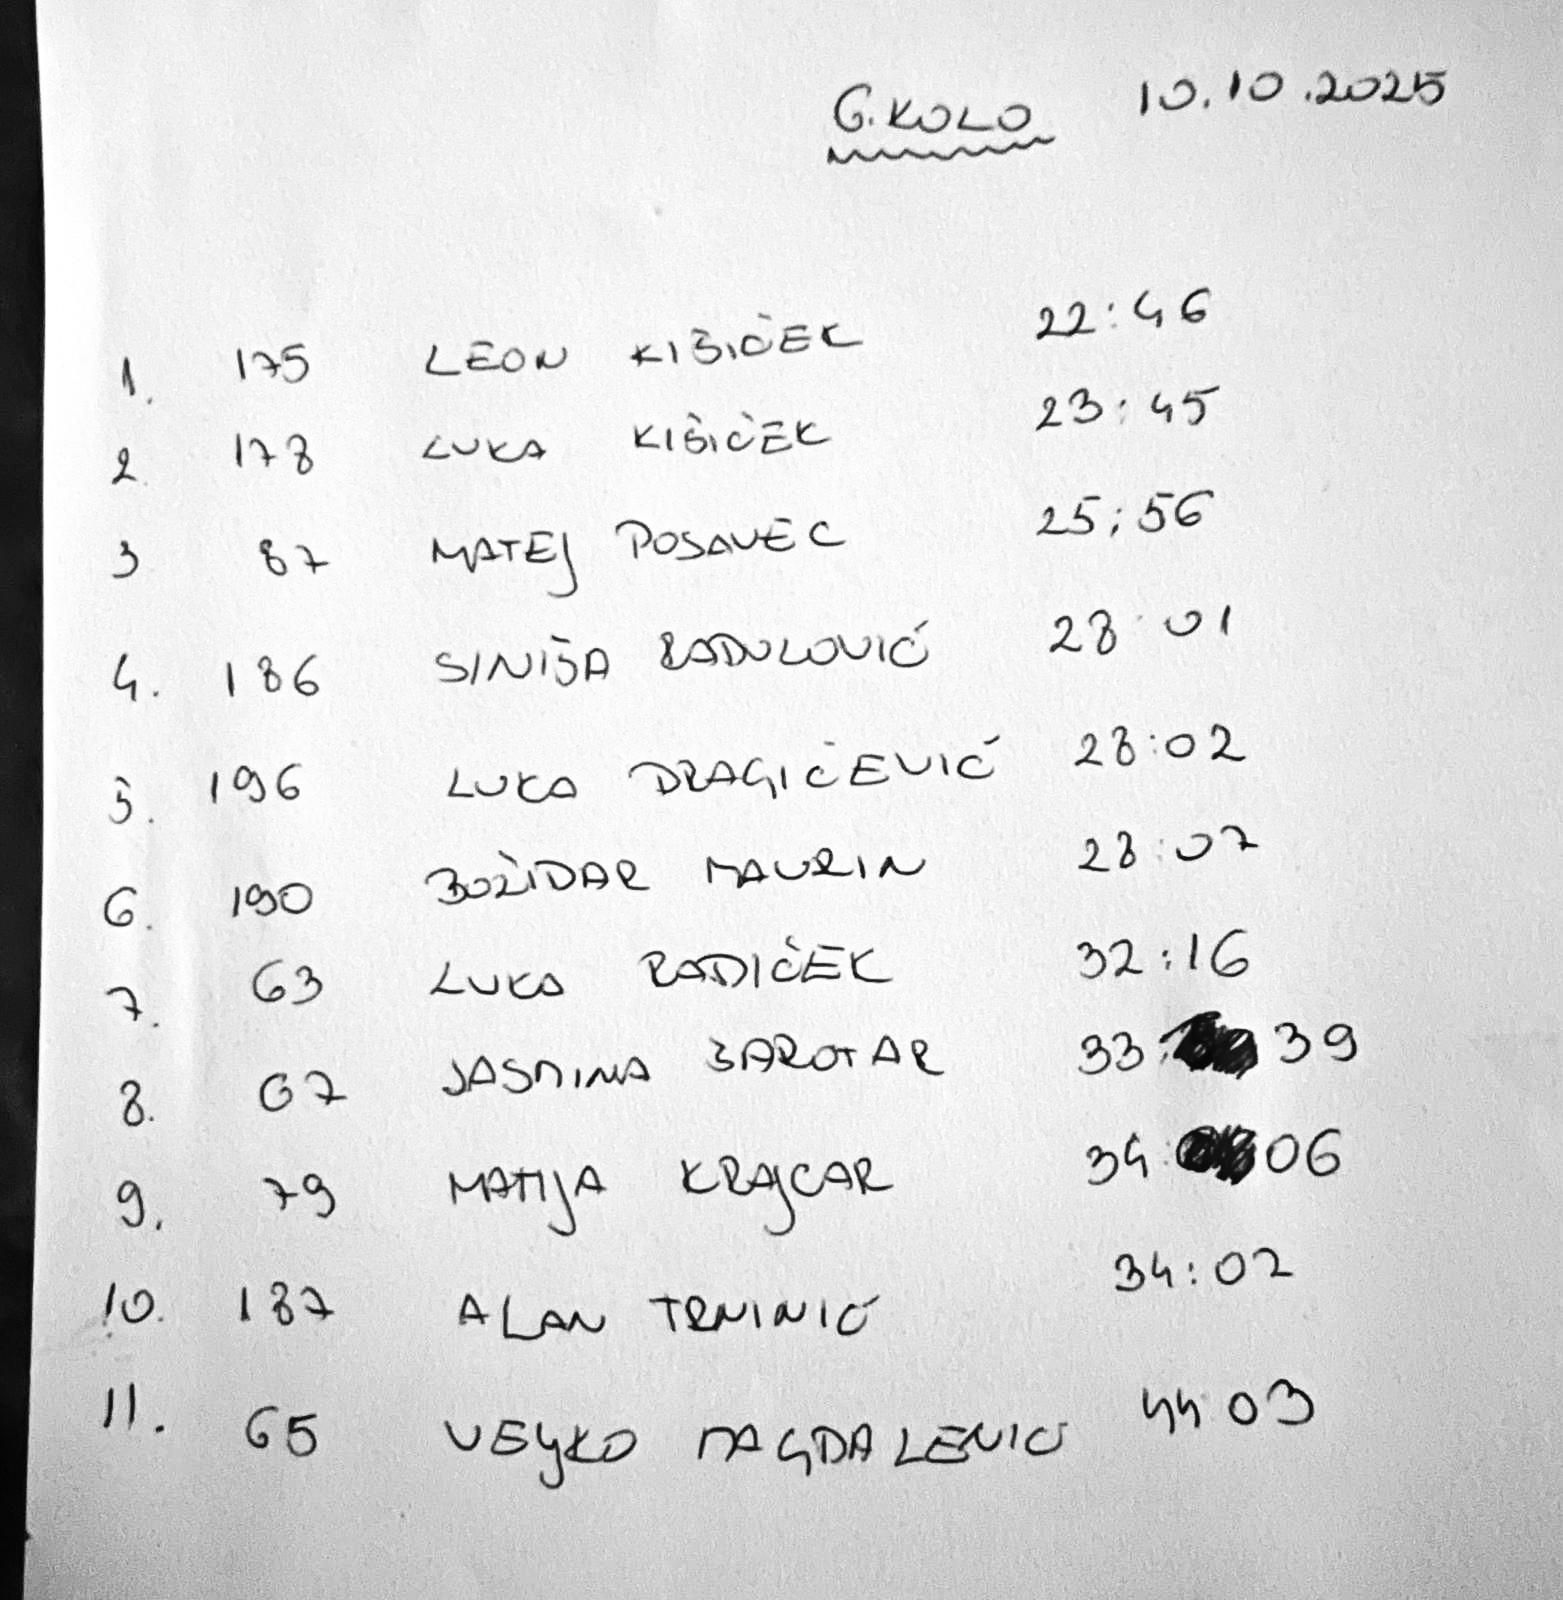 6. KOLO 10.10.2025
1. 175 LEON KIŠIČEK 22:46
2. 178 LUKA KIŠIČEK 23:45
3 87 MATEJ POSAVEC 25:56
4. 186 SINIŠA RADULOVIĆ 28:01
5. 196 LUKA DRAGIČEVIĆ 28:02
6. 190 BOŽIDAR MAVRIN 28:07
7. 63 LUKA RADIČEK 32:16
8. 67 JASMINA ŠAROTAR 33:39
9. 79 MATIJA KRAJCAR 34:06
10. 187 ALAN TRNINIĆ 34:02
11. 65 VELJKO MAGDALENIĆ 44 03